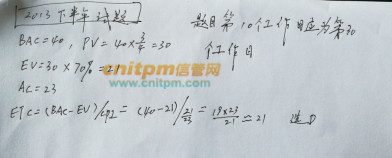 2013下半年试题
BAC=40, PV=40×3/4=30
EV=30×70%=21
AC=23
ETC=(BAC-EV)/CPI=(40-21)/21/23=19×23/21≈21 选D
题目第10个工作日应为第30
个工作日
cnitpm信管网
www.cnitpm.com